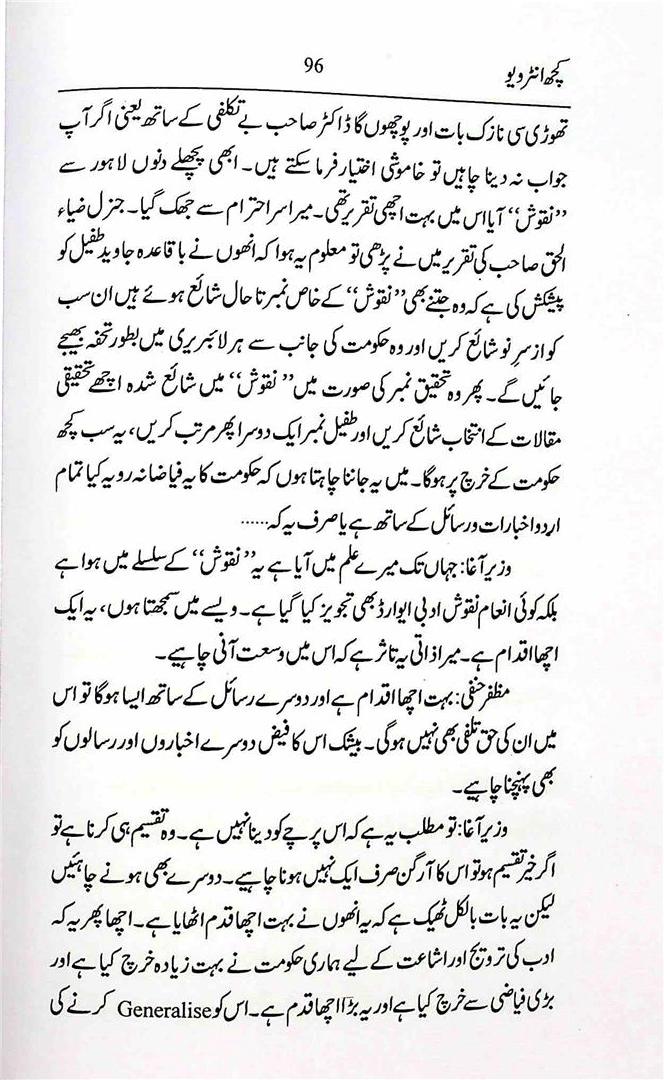 کچھ انٹرویو
96
تھوڑی سی نازک بات اور پوچھوں گا ڈاکٹر صاحب بے تکلفی کے ساتھ یعنی اگر آپ
جواب نہ دینا چاہیں تو خاموشی اختیار فرما سکتے ہیں۔ ابھی پچھلے دنوں لاہور سے
’’نقوش‘‘ آیا اس میں بہت اچھی تقریر تھی۔ میرا سر احترام سے جھک گیا۔ جنرل ضیاء
الحق صاحب کی تقریر میں نے پڑھی تو معلوم یہ ہوا کہ انھوں نے باقاعدہ جاوید طفیل کو
پیشکش کی ہے کہ وہ جتنے بھی ’’نقوش‘‘ کے خاص نمبر تاحال شائع ہوئے ہیں ان سب
کو از سرِ نو شائع کریں اور وہ حکومت کی جانب سے ہر لائبریری میں بطور تحفہ بھیجے
جائیں گے۔ پھر وہ تحقیق نمبر کی صورت میں ’’نقوش‘‘ میں شائع شدہ اچھے تحقیقی
مقالات کے انتخاب شائع کریں اور طفیل نمبر ایک دوسرا پھر مرتب کریں، یہ سب کچھ
حکومت کے خرچ پر ہوگا۔ میں یہ جاننا چاہتا ہوں کہ حکومت کا یہ فیاضانہ رویہ کیا تمام
اردو اخبارات و رسائل کے ساتھ ہے یا صرف یہ کہ......
وزیر آغا: جہاں تک میرے علم میں آیا ہے یہ ’’نقوش‘‘ کے سلسلے میں ہوا ہے
بلکہ کوئی انعام نقوش ادبی ایوارڈ بھی تجویز کیا گیا ہے۔ ویسے میں سمجھتا ہوں، یہ ایک
اچھا اقدام ہے۔ میرا ذاتی یہ تاثر ہے کہ اس میں وسعت آنی چاہیے۔
مظفر حنفی: بہت اچھا اقدام ہے اور دوسرے رسائل کے ساتھ ایسا ہوگا تو اس
میں ان کی حق تلفی بھی نہیں ہوگی۔ بیشک اس کا فیض دوسرے اخباروں اور رسالوں کو
بھی پہنچنا چاہیے۔
وزیر آغا: تو مطلب یہ ہے کہ اس پرچے کو دینا نہیں ہے۔ وہ تقسیم ہی کرنا ہے تو
اگر خیر تقسیم ہو تو اس کا آرگن صرف ایک نہیں ہونا چاہیے۔ دوسرے بھی ہونے چاہئیں
لیکن یہ بات بالکل ٹھیک ہے کہ یہ انھوں نے بہت اچھا قدم اٹھایا ہے۔ اچھا پھر یہ کہ
ادب کی ترویج اور اشاعت کے لیے ہماری حکومت نے بہت زیادہ خرچ کیا ہے اور
بڑی فیاضی سے خرچ کیا ہے اور یہ بڑا اچھا قدم ہے۔ اس کو Generalise کرنے کی